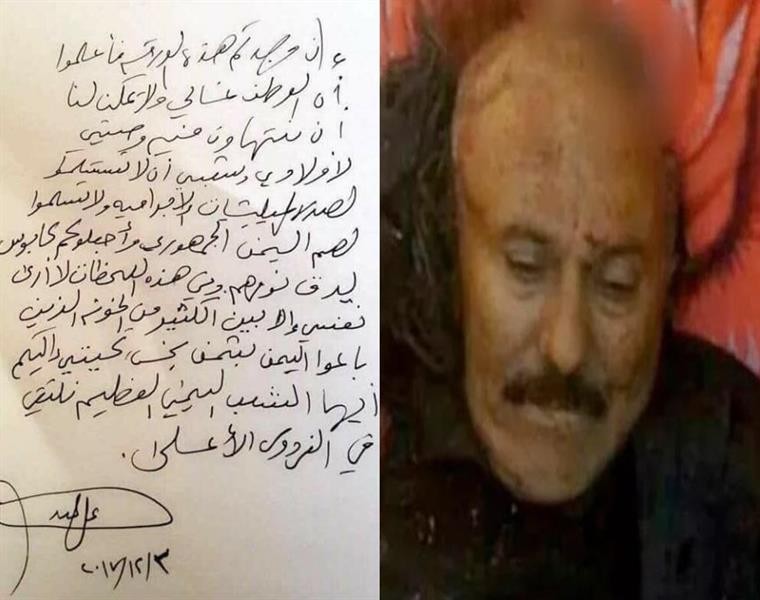 إن وجدتم هذه الورقة فأعلموا
أن الوطن غالي ولا يمكن لنا
أن نتهاون فيه وصيتي
لأولادي وشعبي أن لا تستسلموا
لهذه المليشيات الإجرامية ولا تسلموا
لهم اليمن الجمهوري وأجعلوكم كابوس
نومهم وفي هذه اللحظات لا أرى
نفسي إلا بين الكثير من الخونه الذين
باعوا اليمن بثمن بخس تحيتي إليكم
أيها الشعب اليمني العظيم نلتقي
في الفردوس الأعلى.
٢٠١٧/١٢/٣